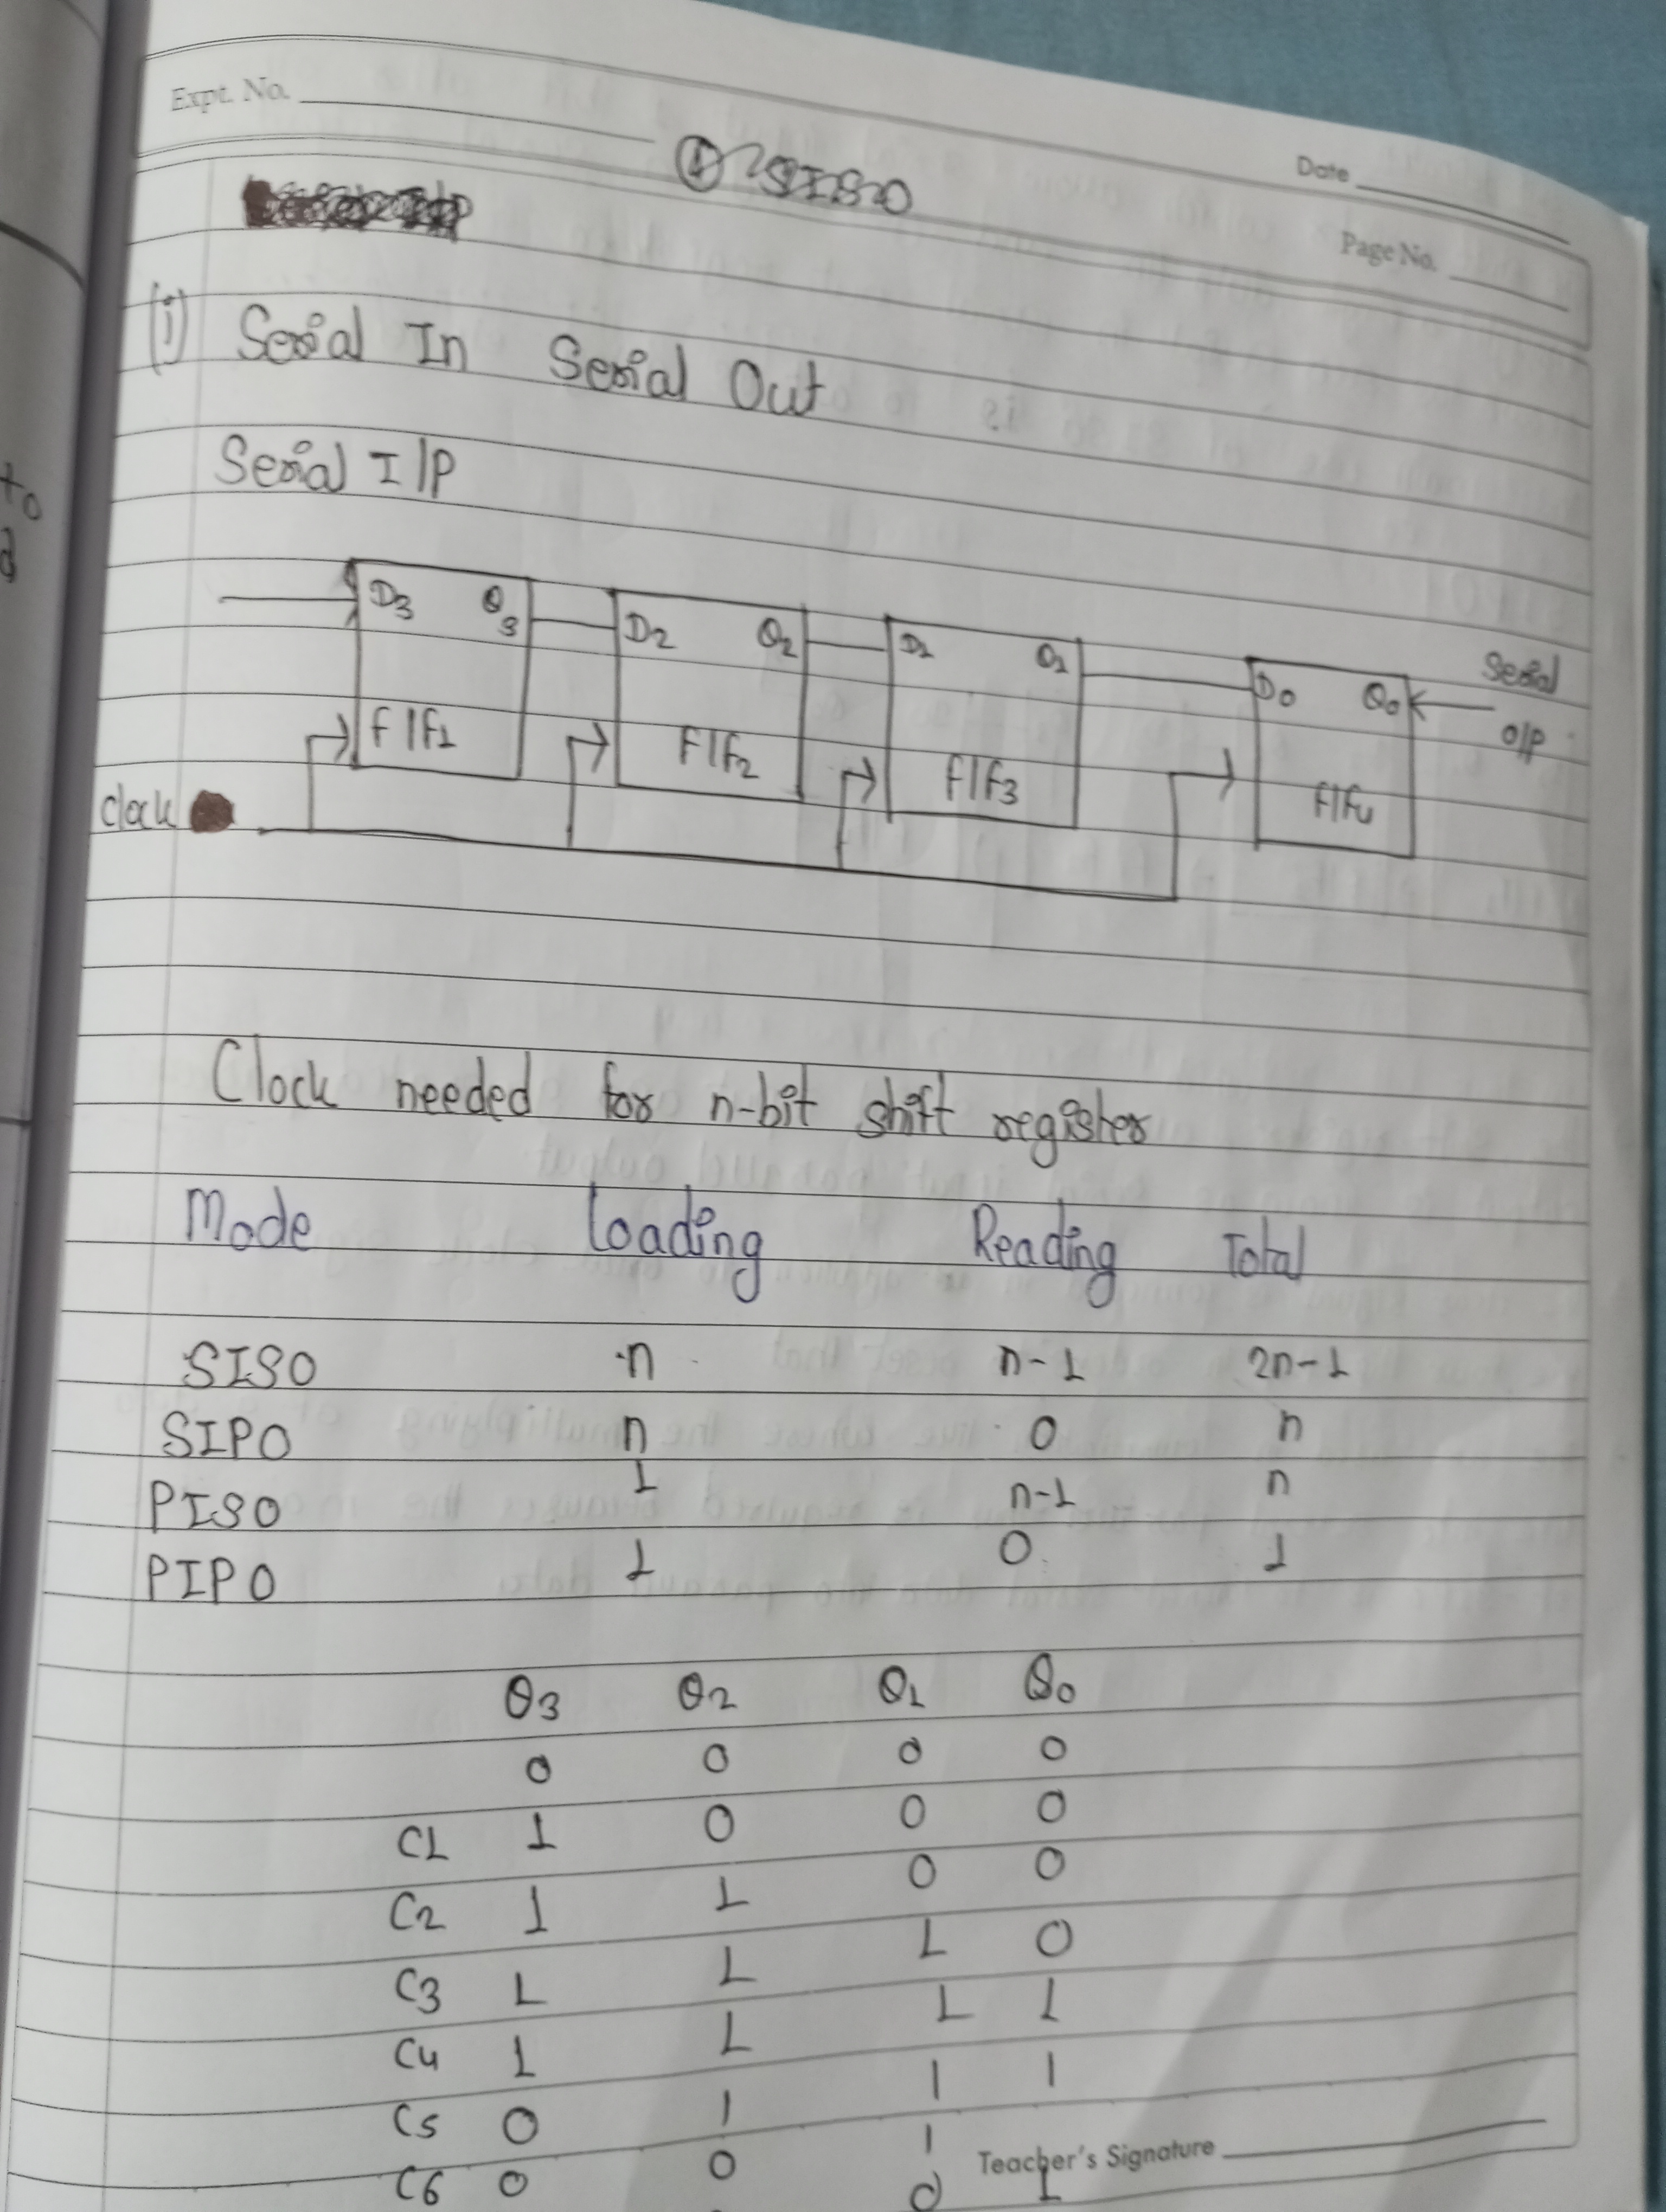 Expt. No.
Date
Page No.
① SISO
(i) Serial In Serial Out
Serial I/P
D3 Q3 D2 Q2 D1 Q1 D0 Q0 Serial
O/P
F/F1 F/F2 F/F3 F/F4
Clock
Clock needed for n-bit shift register
Mode Loading Reading Total
SISO n n-1 2n-1
SIPO n 0 n
PISO 1 n-1 n
PIPO 1 0 1
Q3 Q2 Q1 Q0
0 0 0 0
C1 1 0 0 0
C2 1 1 0 0
C3 1 1 1 0
C4 1 1 1 1
C5 0 1 1 1
C6 0 0 1 1
0
Teacher's Signature
to